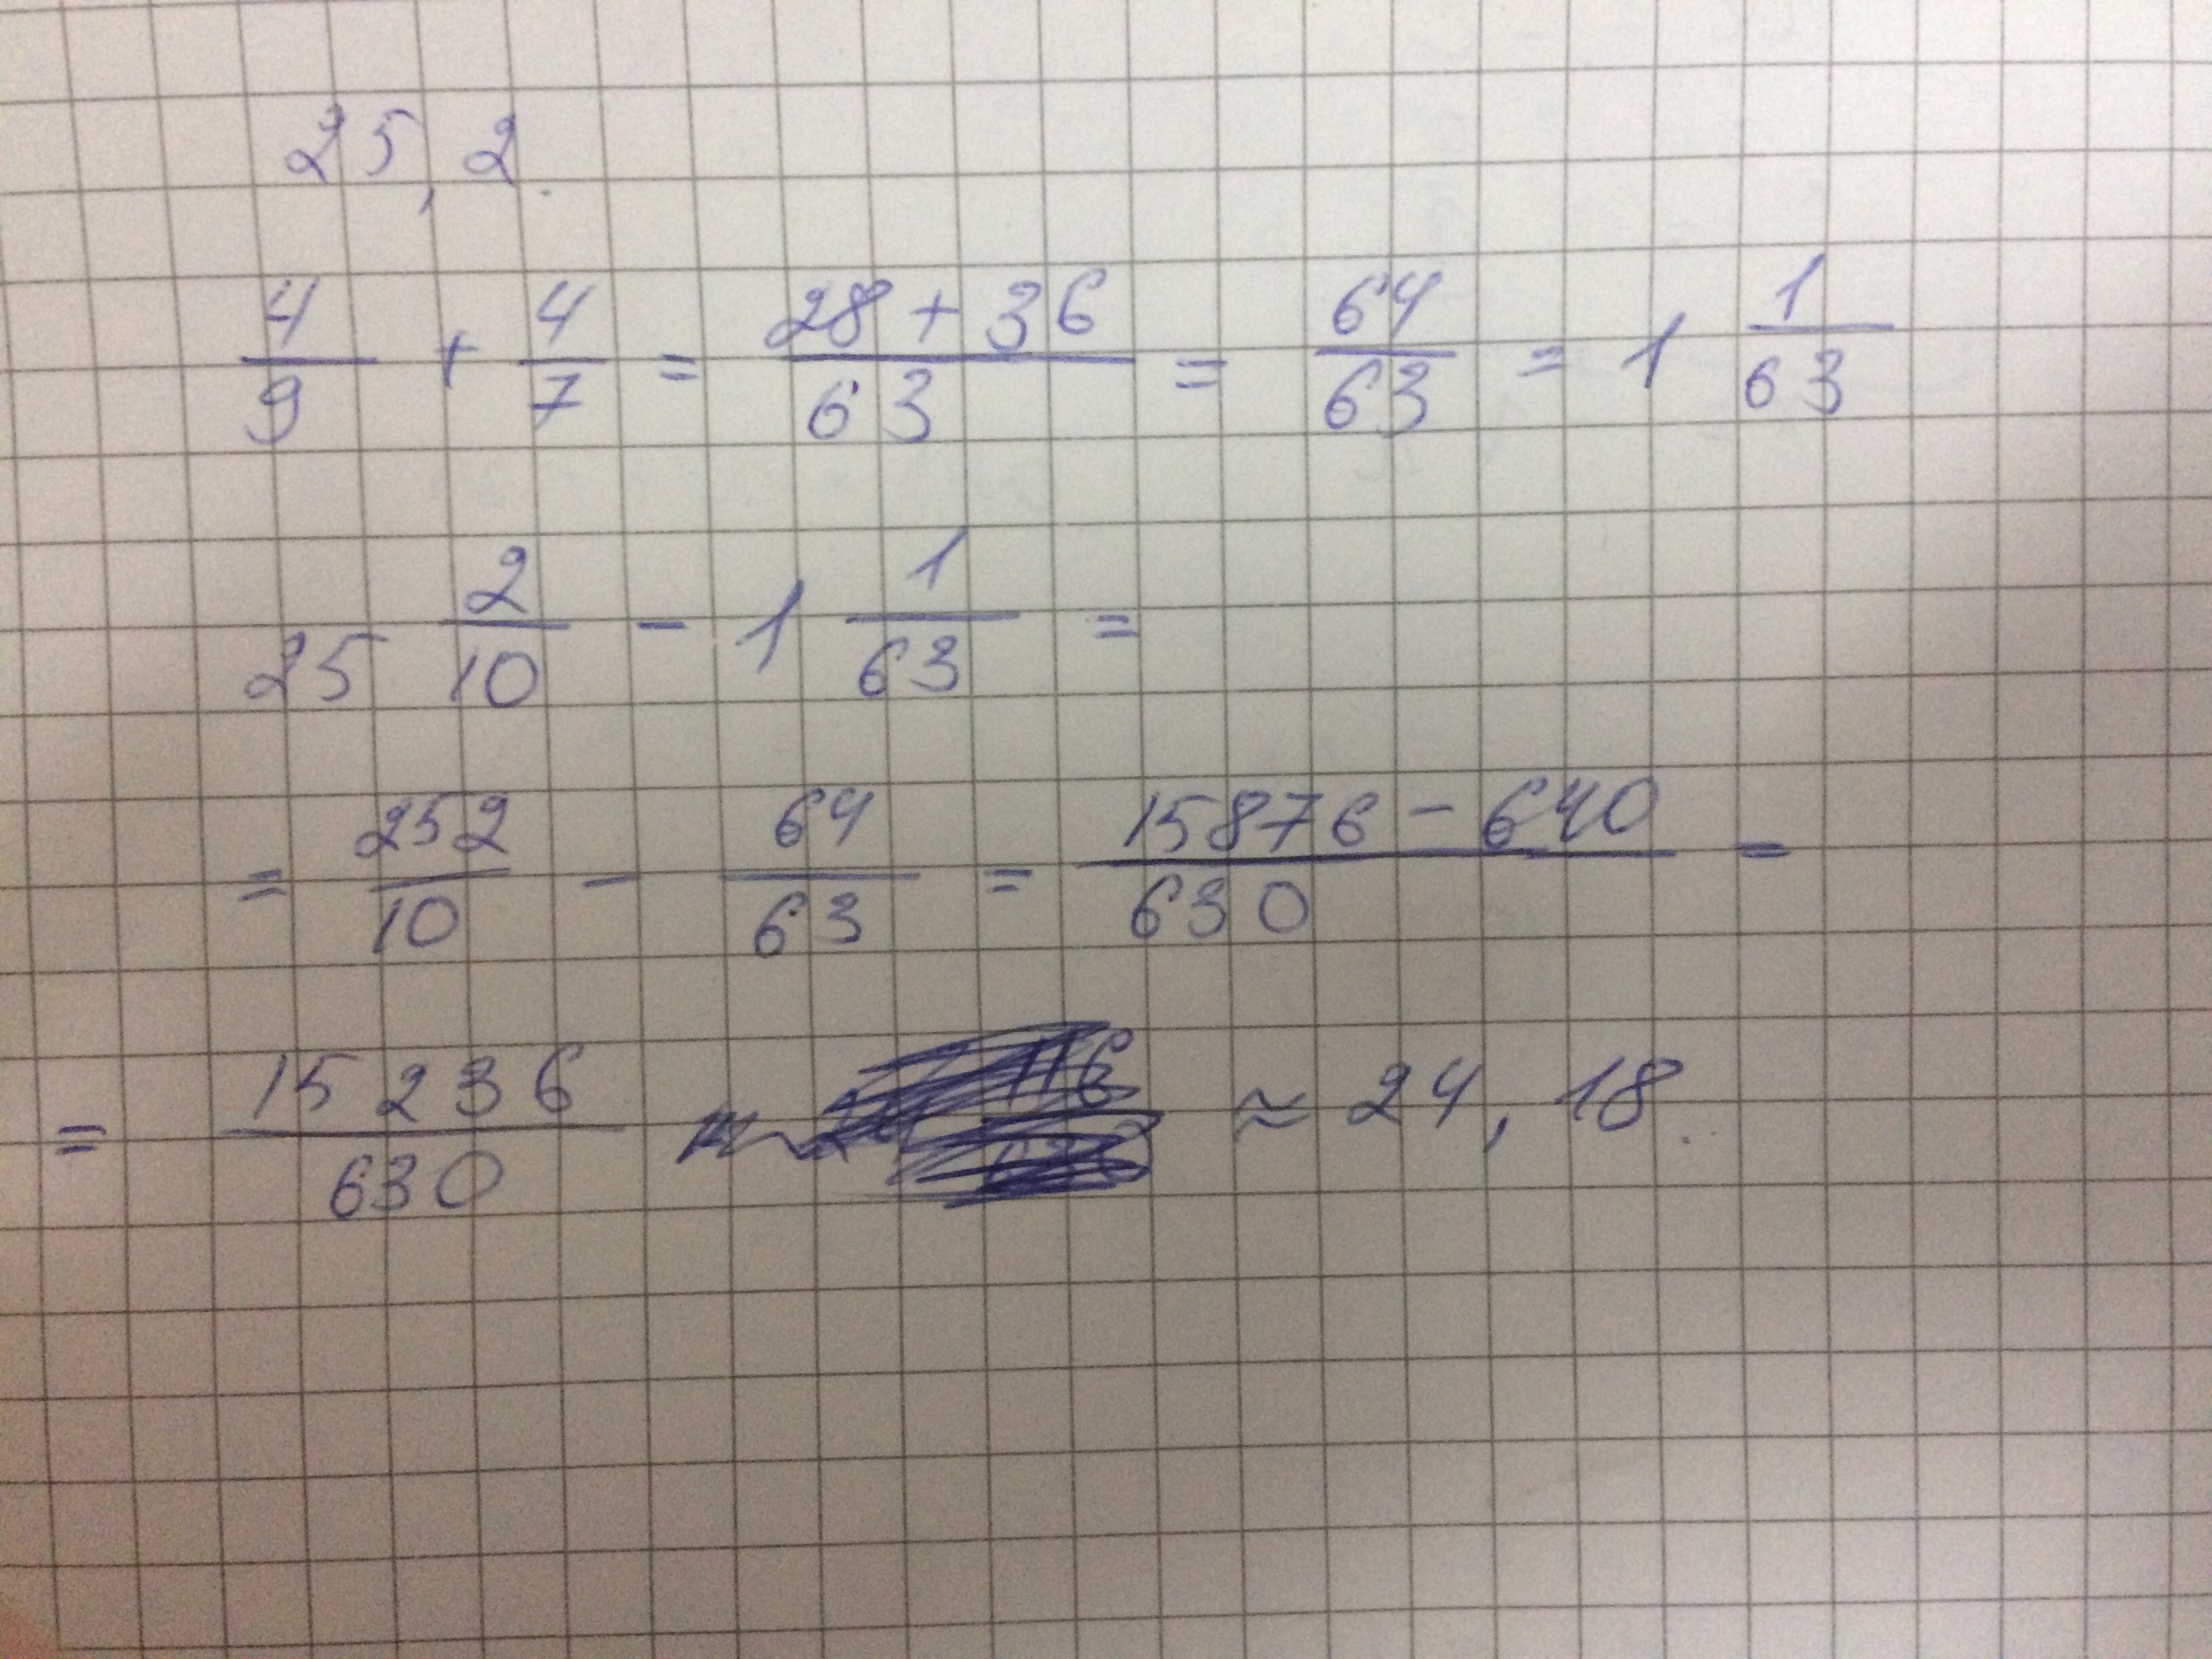 25,2.
4/9 + 4/7 = 28+36/63 = 64/63 = 1 1/63
25 2/10 - 1 1/63 =
= 252/10 - 64/63 = 15876-640/630 =
= 15236/630 ≈ 24,18.